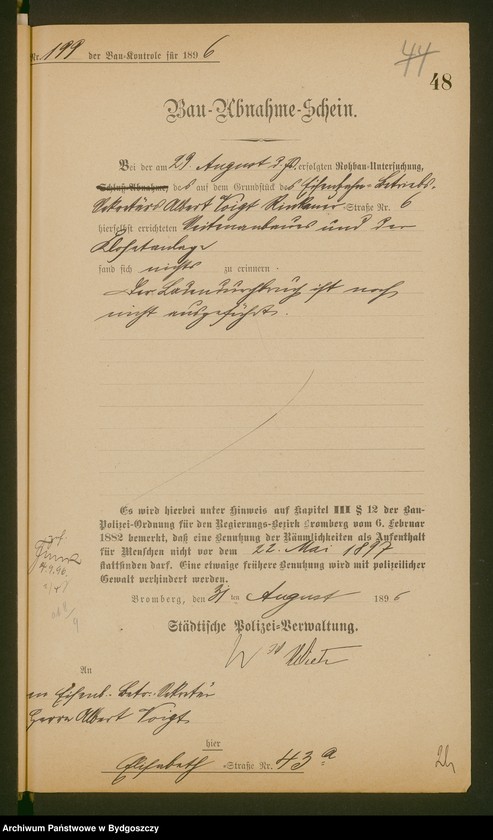 Nr. 199 der Bau-Kontrole für 1896
44
48
Bau-Abnahme-Schein.
Bei der am 29. August d. J. erfolgten Rohbau-Untersuchung,
Schluß-Abnahme, des auf dem Grundstück des Eisenbahn-Betriebs-
Sekretärs Albert Voigt Rinkauer Straße Nr. 6
hierselbst errichteten Seitenanbaues und der
Klosetanlage
fand sich nichts zu erinnern.
Der ist noch
nicht ausgeführt.
Es wird hierbei unter Hinweis auf Kapitel III § 12 der Bau-
Polizei-Ordnung für den Regierungs-Bezirk Bromberg vom 6. Februar
1882 bemerkt, daß eine Benutzung der Räumlichkeiten als Aufenthalt
für Menschen nicht vor dem 22. Mai 1897
stattfinden darf. Eine etwaige frühere Benutzung wird mit polizeilicher
Gewalt verhindert werden.
Bromberg, den 31ten August 1896
Städtische Polizei-Verwaltung.
An
den Eisenb.-Betr.-Sekretär
Herrn Albert Voigt
hier
Elisabeth-Straße Nr. 43a
Archiwum Państwowe w Bydgoszczy